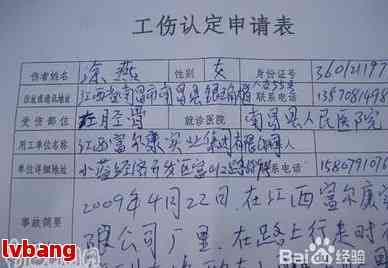 工伤认定申请表
伤者姓名 涂燕 性别 女 身份证号 360121197
住址或通讯地址 江西省南昌市南昌县 联系电话 1357081498
受伤部位 左胫骨 就诊医院 南昌县人民医院
用工单位名称 江西富尔康实业集团有限公司
单位详细地址 小蓝经济开发区富山 联系电话 1580791016
事故简要 2009年4月22日,在江西富尔康实
限公司厂里,在路上行走时
lvbang
Bai 百度经验